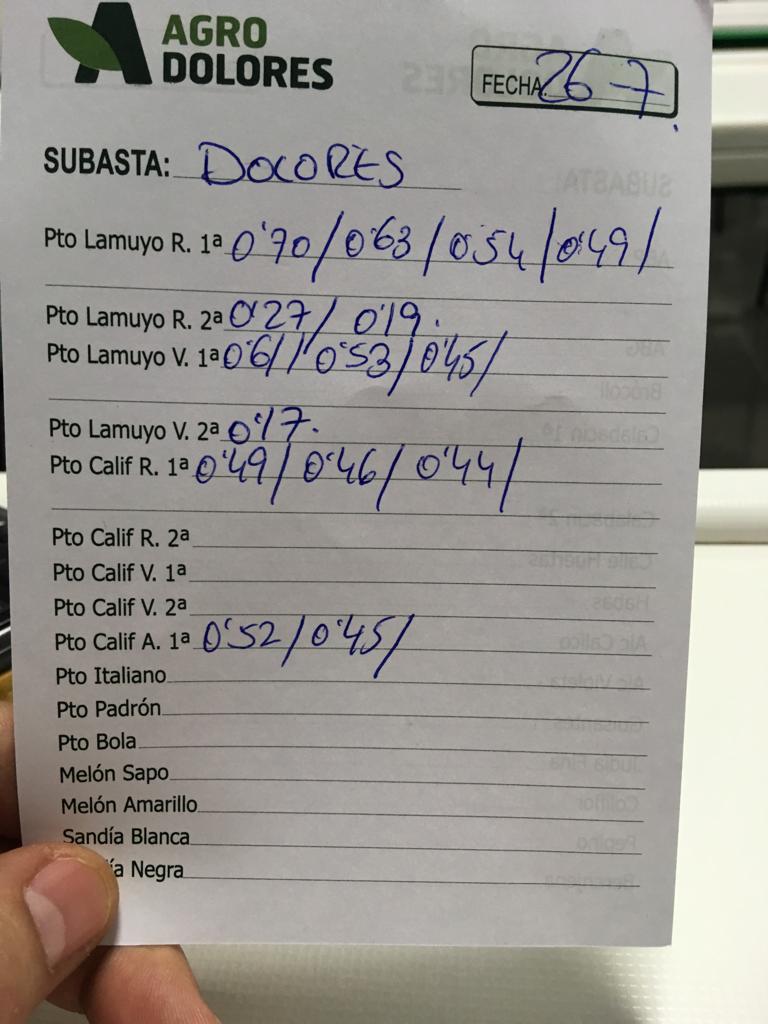 AGRO
DOLORES
FECHA 26-7.
SUBASTA: DOLORES
Pto Lamuyo R. 1ª 0'70/0'63/0'54/0'49/
Pto Lamuyo R. 2ª 0'27/ 0'19.
Pto Lamuyo V. 1ª 0'61/0'53/0'45/
Pto Lamuyo V. 2ª 0'17.
Pto Calif R. 1ª 0'49/0'46/0'44/
Pto Calif R. 2ª
Pto Calif V. 1ª
Pto Calif V. 2ª
Pto Calif A. 1ª 0'52/0'45/
Pto Italiano
Pto Padrón
Pto Bola
Melón Sapo
Melón Amarillo
Sandía Blanca
ía Negra